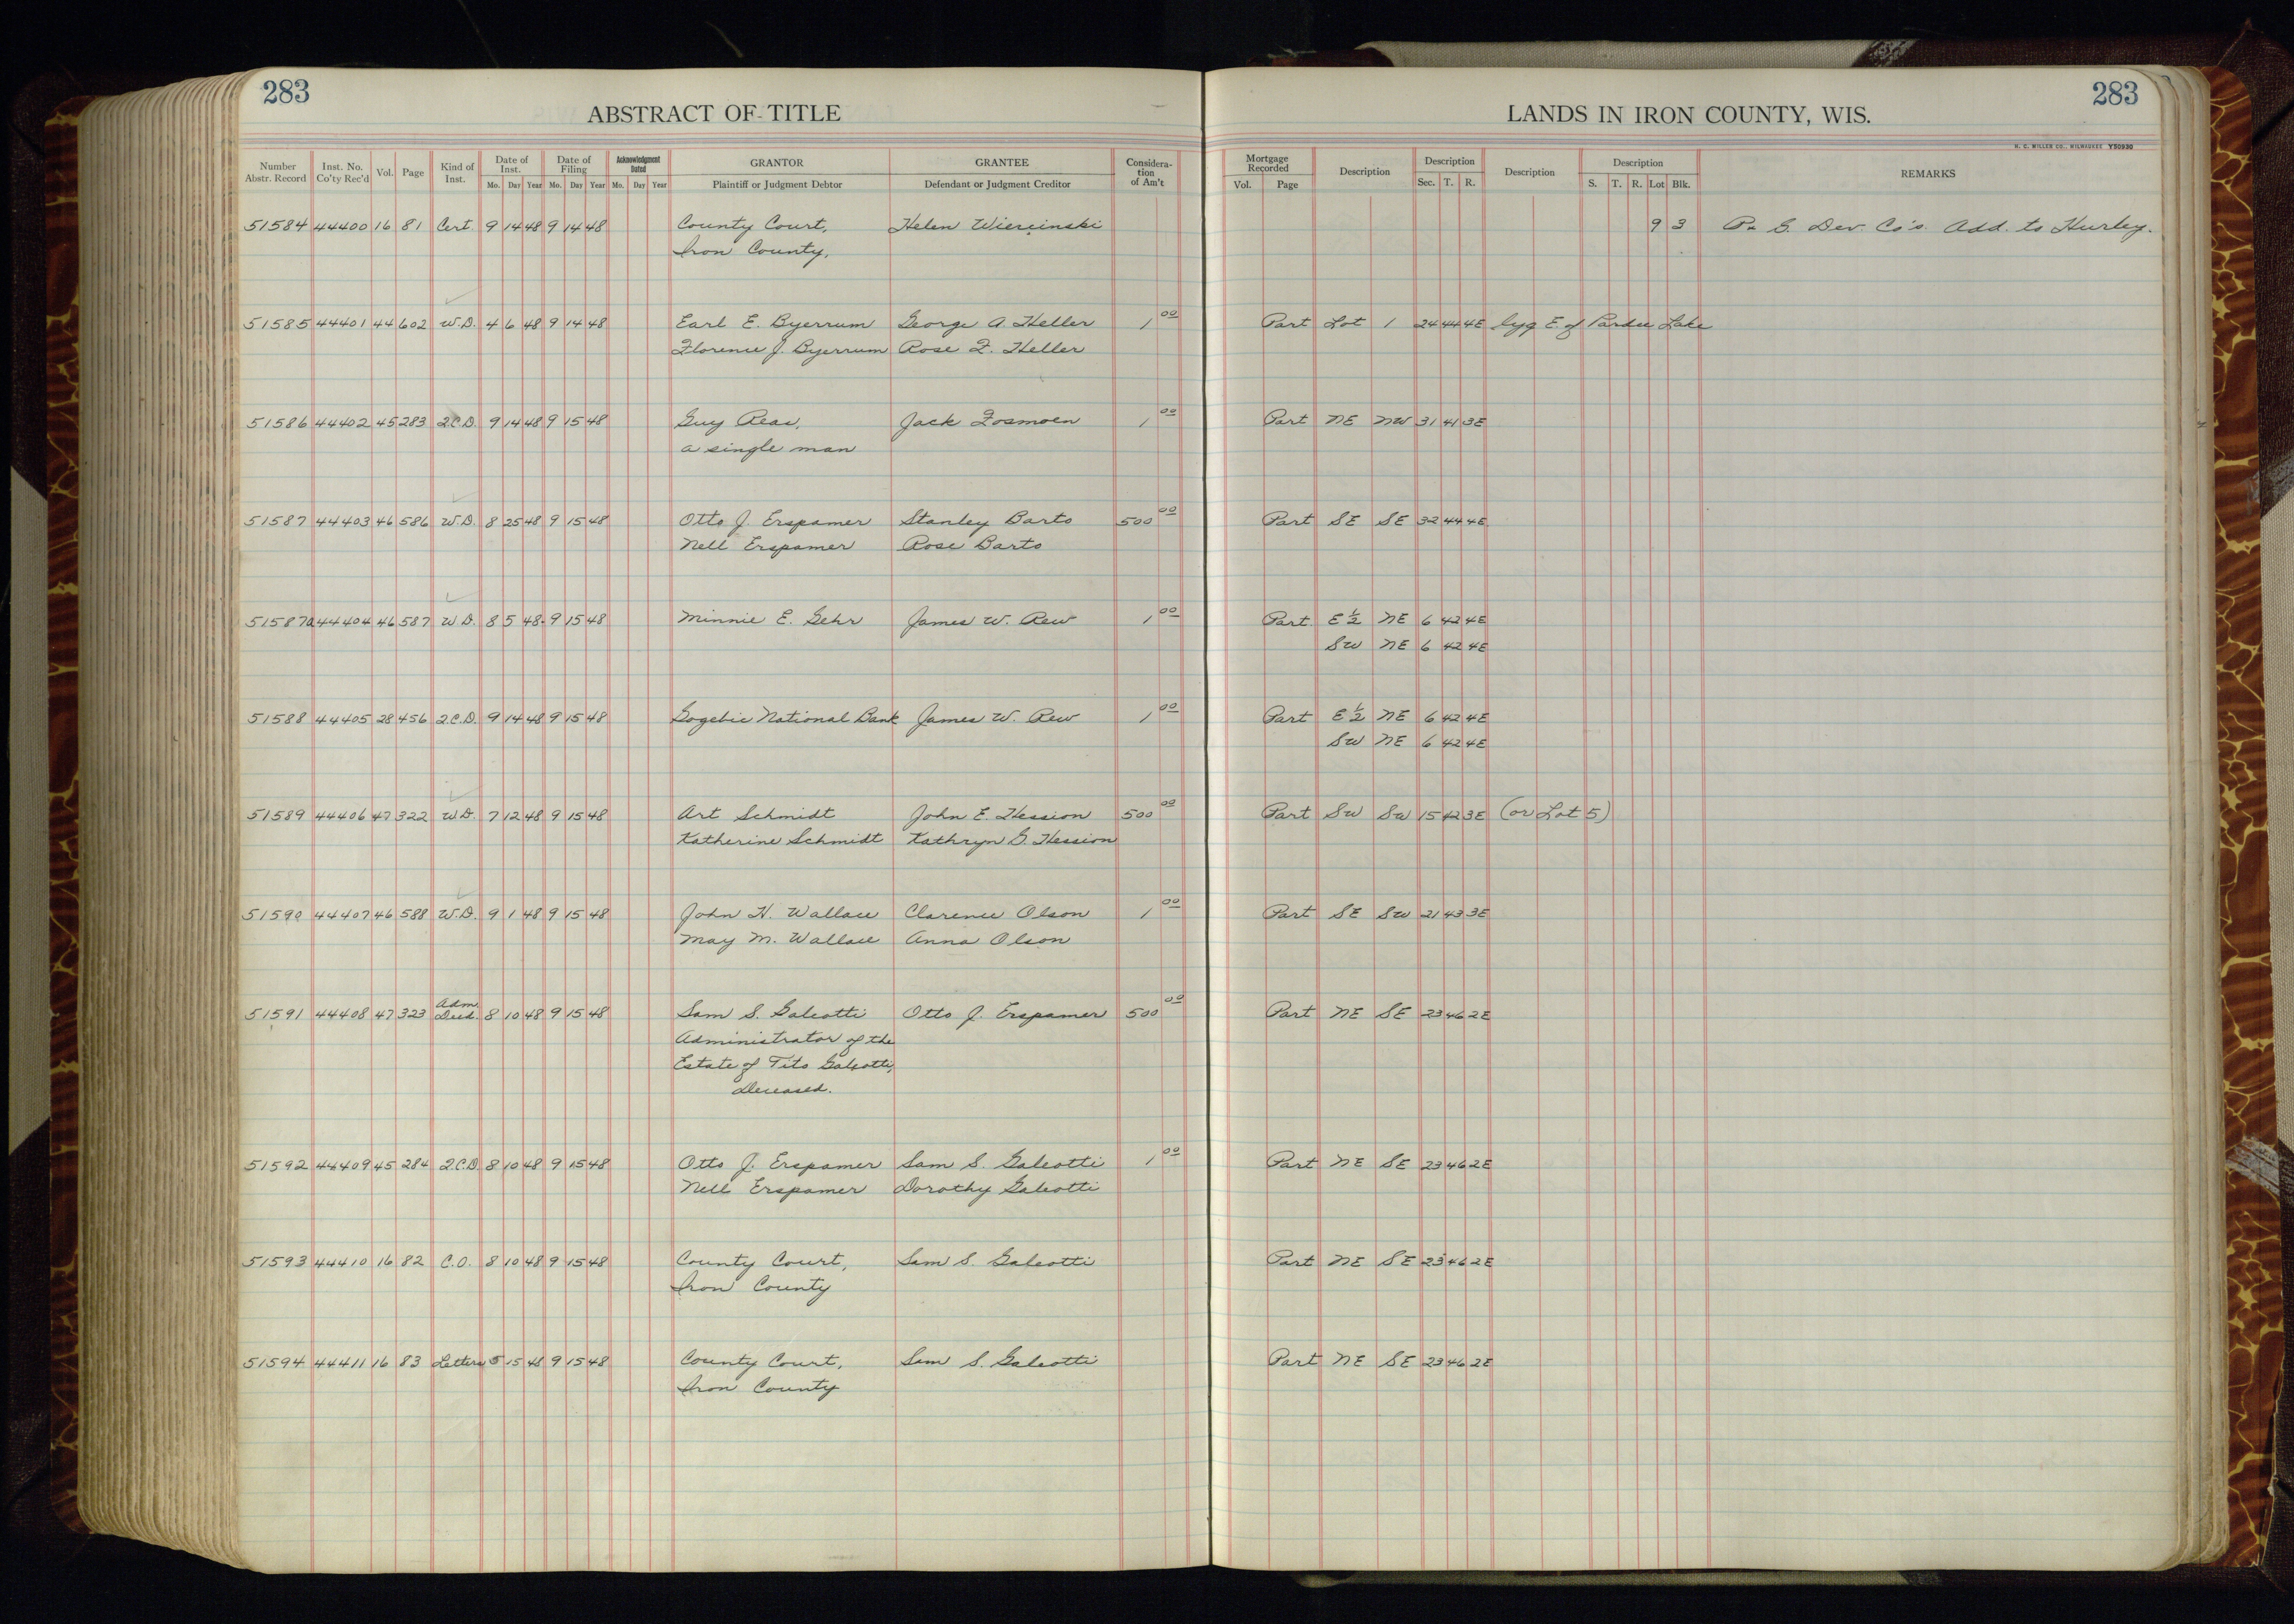 283
283
ABSTRACT OF TITLE
LANDS IN IRON COUNTY, WIS.
H. C. MILLER CO., MILWAUKEE Y50930
Number Abstr. Record | Inst. No. Co'ty Rec'd | Vol. | Page | Kind of Inst. | Date of Inst. Mo. Day Year | Date of Filing Mo. Day Year | Acknowledgment Dated Mo. Day Year | GRANTOR Plaintiff or Judgment Debtor | GRANTEE Defendant or Judgment Creditor | Considera-tion of Am't | Mortgage Recorded Vol. Page | Description | Description Sec. T. R. | Description | Description S. T. R. Lot Blk. | REMARKS
51584 44400 16 81 Cert. 9 14 48 9 14 48 County Court, Helen Wiercinski 9 3 P & G. Dev. Co's. Add. to Hurley.
Iron County,
51585 44401 44 602 W.D. 4 6 48 9 14 48 Earl E. Byerrum George A. Heller 1 00 Part Lot 1 24 44 4E lyg E. of Pardee Lake
Florence J. Byerrum Rose F. Heller
51586 44402 45 283 Q.C.D. 9 14 48 9 15 48 Guy Reas, Jack Fosmoen 1 00 Part NE NW 31 41 3E
a single man
51587 44403 46 586 W.D. 8 25 48 9 15 48 Otto J. Erspamer Stanley Barto 500 00 Part SE SE 32 44 4E
Nell Erspamer Rose Barto
51587a 44404 46 587 W.D. 8 5 48 9 15 48 Minnie E. Gehr James W. Rew 1 00 Part E ½ NE 6 42 4E
SW NE 6 42 4E
51588 44405 28 456 Q.C.D. 9 14 48 9 15 48 Gogebic National Bank James W. Rew 1 00 Part E ½ NE 6 42 4E
SW NE 6 42 4E
51589 44406 47 322 W.D. 7 12 48 9 15 48 Art Schmidt John E. Hession 500 00 Part SW SW 15 42 3E (or Lot 5)
Katherine Schmidt Kathryn G. Hession
51590 44407 46 588 W.D. 9 1 48 9 15 48 John H. Wallace Clarence Olson 1 00 Part SE SW 21 43 3E
May M. Wallace Anna Olson
51591 44408 47 323 Adm. Deed. 8 10 48 9 15 48 Sam S. Galeotti Otto J. Erspamer 500 00 Part NE SE 23 46 2E
Administrator of the
Estate of Tito Galeotti,
Deceased.
51592 44409 45 284 Q.C.D. 8 10 48 9 15 48 Otto J. Erspamer Sam S. Galeotti 1 00 Part NE SE 23 46 2E
Nell Erspamer Dorothy Galeotti
51593 44410 16 82 C.O. 8 10 48 9 15 48 County Court, Sam S. Galeotti Part NE SE 23 46 2E
Iron County
51594 44411 16 83 Letters 5 15 48 9 15 48 County Court, Sam S. Galeotti Part NE SE 23 46 2E
Iron County